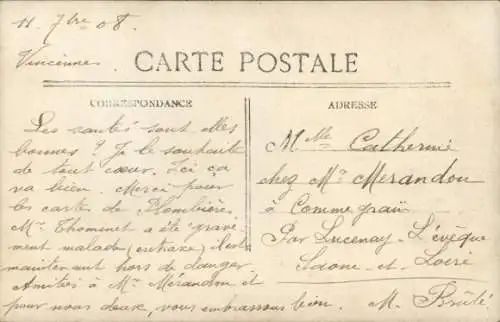 11. 7bre 08.
Vincennes.
CARTE POSTALE
CORRESPONDANCE
Les santés sont elles
bonnes? Je le souhaite
de tout cœur. Ici ça
va bien. Merci pour
les cartes de Plombières.
Mr Thomenet a été grave-
ment malade
maintenant hors de danger.
Amitiés à Mr Mérandon et
pour vous deux, vous embrassons bien. M. Brûlé
ADRESSE
Mlle Catherine
chez Mr Merandon
à Commegrain
Par Lucenay-L'évêque
Saone-et-Loire